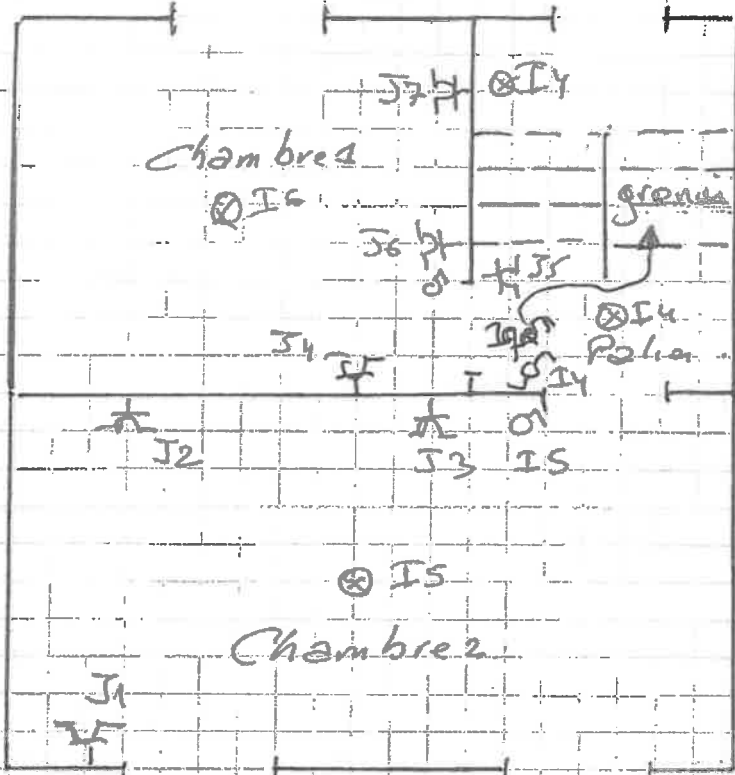 J7
I4
Chambre 1
I6
J6
J5
I4
Palier
J4
I4
J2
J3
I5
I5
Chambre 2
J1